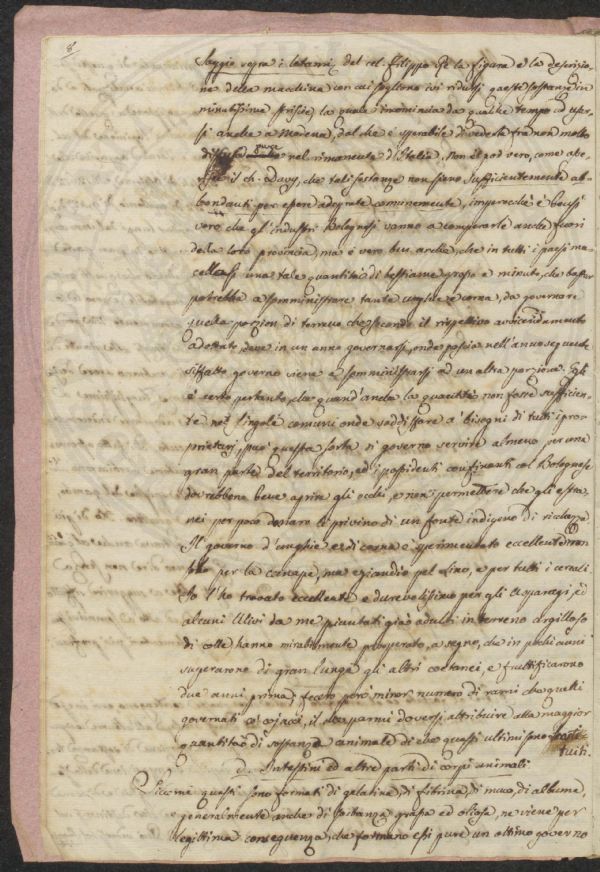 8
Saggio sopra i letami, del cel. Filippo Re la figura e la descrizio-
ne della macchina con cui sogliono ivi ridursi queste sostanze in
minutissime striscie) la quale incomincia da qualche tempo ad usar-
si anche a Modena, dal che è sperabile di vederla fra non molto
pure nel rimanente d'Italia. Non è poi vero, come
il ch. Davy, che tali sostanze non sieno sufficientemente ab-
bondanti per essere adoprate comunemente, imperochè è bensì
vero che gl'industri Bolognesi vanno a comperarle anche fuori
della loro provincia, ma è vero ben anche, che in tutti i paesi ma-
cellasi una tale quantità di bestiame grosso e minuto, che bastar
potrebbe a somministrare tante unghie e corna, da governare
quella porzion di terreno che secondo il rispettivo avvicendamento
adottato deve in un anno governarsi, onde poscia nell'anno seguente
siffatto governo viene a somministrarsi ad un altra porzione. Egli
è certo pertanto, che quand'anche la quantità non fosse sufficien-
te ne' singoli comuni onde soddisfare a' bisogni di tutti i pro-
prietarj, può questa sorta di governo servire almeno per una
gran parte del territorio, ed i possidenti confinanti col Bolognese
dovrebbono bene aprire gli occhi, e non permettere che gli estra-
nei per poco denaro li privino di un fonte indigeno di richezza.
Il governo d'unghie e di corna è sperimentato eccellente non
solo per la canape, ma eziandio pel Lino, e per tutti i cereali.
Io l'ho trovato eccellente e durevolissimo per gli Asparagi, ed
alcuni Ulivi da me piantati già adulti in terreno argilloso
di colle hanno mirabilmente prosperato, a segno, che in pochi anni
superarono di gran lunga gli altri coetanei, e fruttificarono
due anni prima; fecero però minor numero di rami che quelli
governati co' , il che parmi doversi attribuire alla maggior
quantità di sostanza animale di che questi ultimi sono costi-
tuiti.
D. Intestini ed altre parti di corpi animali
Siccome questi sono formati di gelatina, di fibrina, di muco, di albume,
generalmente anche di sostanza grassa ed oliosa, ne viene per
legittima conseguenza, che formano essi pure un ottimo governo